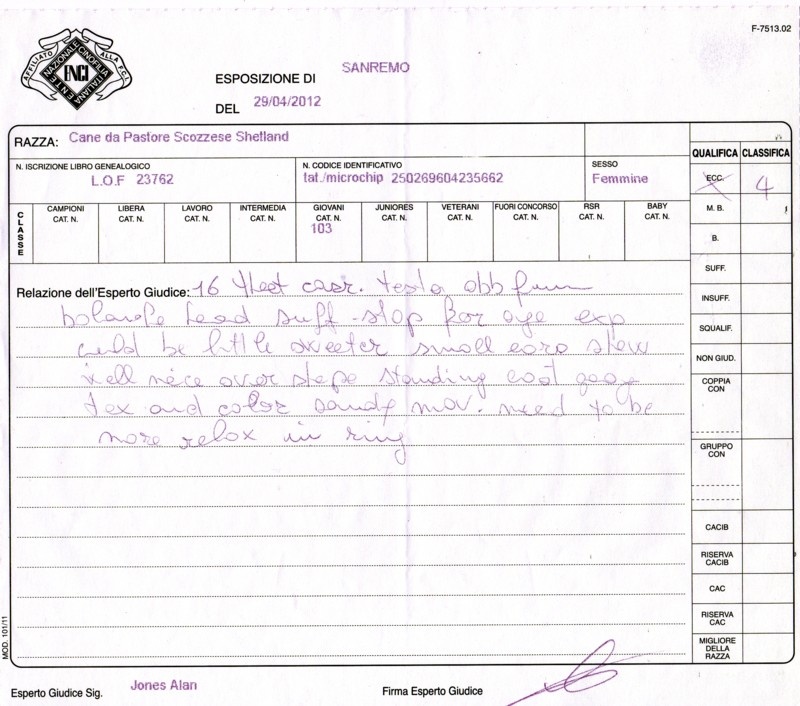 F-7513.02
AFFILIATO ALLA F.C.I.
ENTE NAZIONALE CINOFILIA ITALIANA
ENCI
ESPOSIZIONE DI SANREMO
DEL 29/04/2012
RAZZA: Cane da Pastore Scozzese Shetland
QUALIFICA CLASSIFICA
N. ISCRIZIONE LIBRO GENEALOGICO
L.O.F 23762
N. CODICE IDENTIFICATIVO
tat./microchip 250269604235662
SESSO
Femmine
ECC. 4
M. B.
B.
SUFF.
INSUFF.
SQUALIF.
NON GIUD.
COPPIA CON
GRUPPO CON
CACIB
RISERVA CACIB
CAC
RISERVA CAC
MIGLIORE DELLA RAZZA
CLASSE
CAMPIONI CAT. N.
LIBERA CAT. N.
LAVORO CAT. N.
INTERMEDIA CAT. N.
GIOVANI CAT. N. 103
JUNIORES CAT. N.
VETERANI CAT. N.
FUORI CONCORSO CAT. N.
RSR CAT. N.
BABY CAT. N.
Relazione dell'Esperto Giudice: 16 testa
head suff. stop for eye exp
could be little sweeter small ears
well nice over standing
tex and color mov. need to be
more relax in ring
MOD. 101/11
Esperto Giudice Sig. Jones Alan
Firma Esperto Giudice